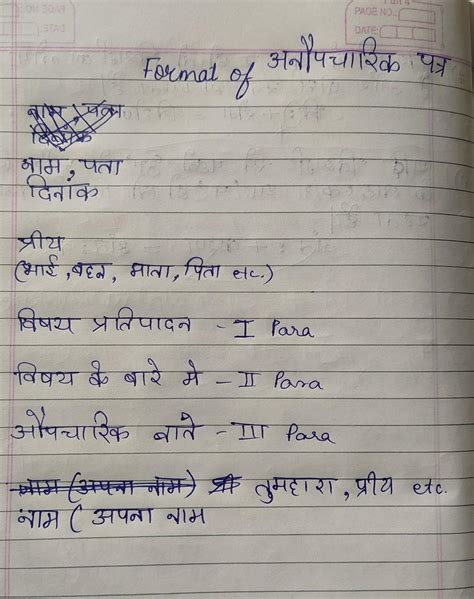 PAGE NO.:
DATE:
Format of अनौपचारिक पत्र
नाम, पता
दिनांक
नाम, पता
दिनांक
प्रीय
(भाई, बहन, माता, पिता etc.)
विषय प्रतिपादन - I Para
विषय के बारे मे - II Para
औपचारिक बाते - III Para
नाम (अपना नाम) तुमहारा, प्रीय etc.
नाम ( अपना नाम